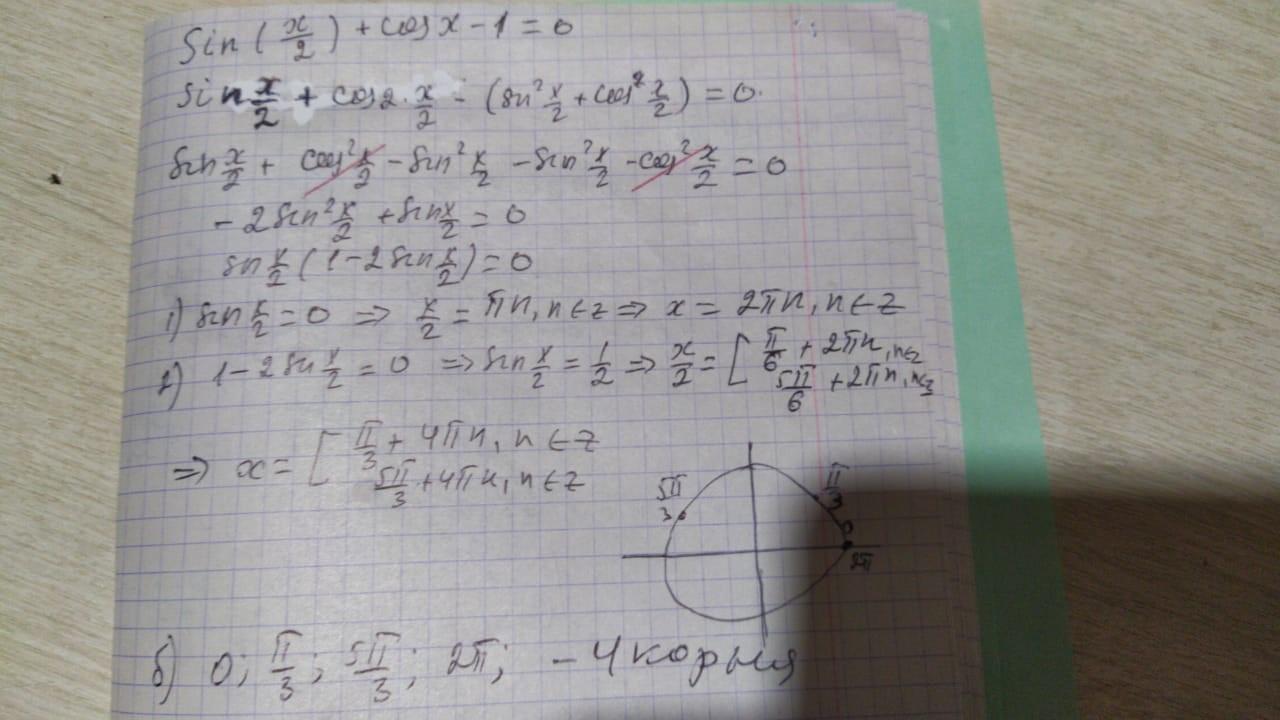 Sin(x/2) + cos x - 1 = 0
sin x/2 + cos 2·x/2 - (sin² x/2 + cos² x/2) = 0.
sin x/2 + cos² x/2 - sin² x/2 - sin² x/2 - cos² x/2 = 0
- 2 sin² x/2 + sin x/2 = 0
sin x/2 (1 - 2 sin x/2) = 0
1) sin x/2 = 0 ⇒ x/2 = πn, n ∈ z ⇒ x = 2πn, n ∈ z
2) 1 - 2 sin x/2 = 0 ⇒ sin x/2 = 1/2 ⇒ x/2 = [ π/6 + 2πn, n∈z
5π/6 + 2πn, n∈z
⇒ x = [ π/3 + 4πn, n ∈ z
5π/3 + 4πn, n ∈ z
5π/3
π/3
0
2π
б) 0; π/3; 5π/3; 2π; - 4 корня